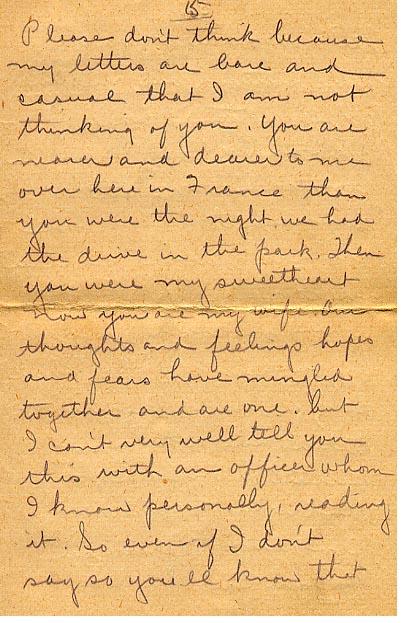 15
Please don't think because
my letters are bare and
casual that I am not
thinking of you. You are
nearer and dearer to me
over here in France than
you were the night we had
the drive in the park. Then
you were my sweetheart
now you are my wife. Our
thoughts and feelings hopes
and fears have mingled
together and are one. But
I can't very well tell you
this with an officer whom
I know personally, reading
it. So even if I don't
say so you'll know that